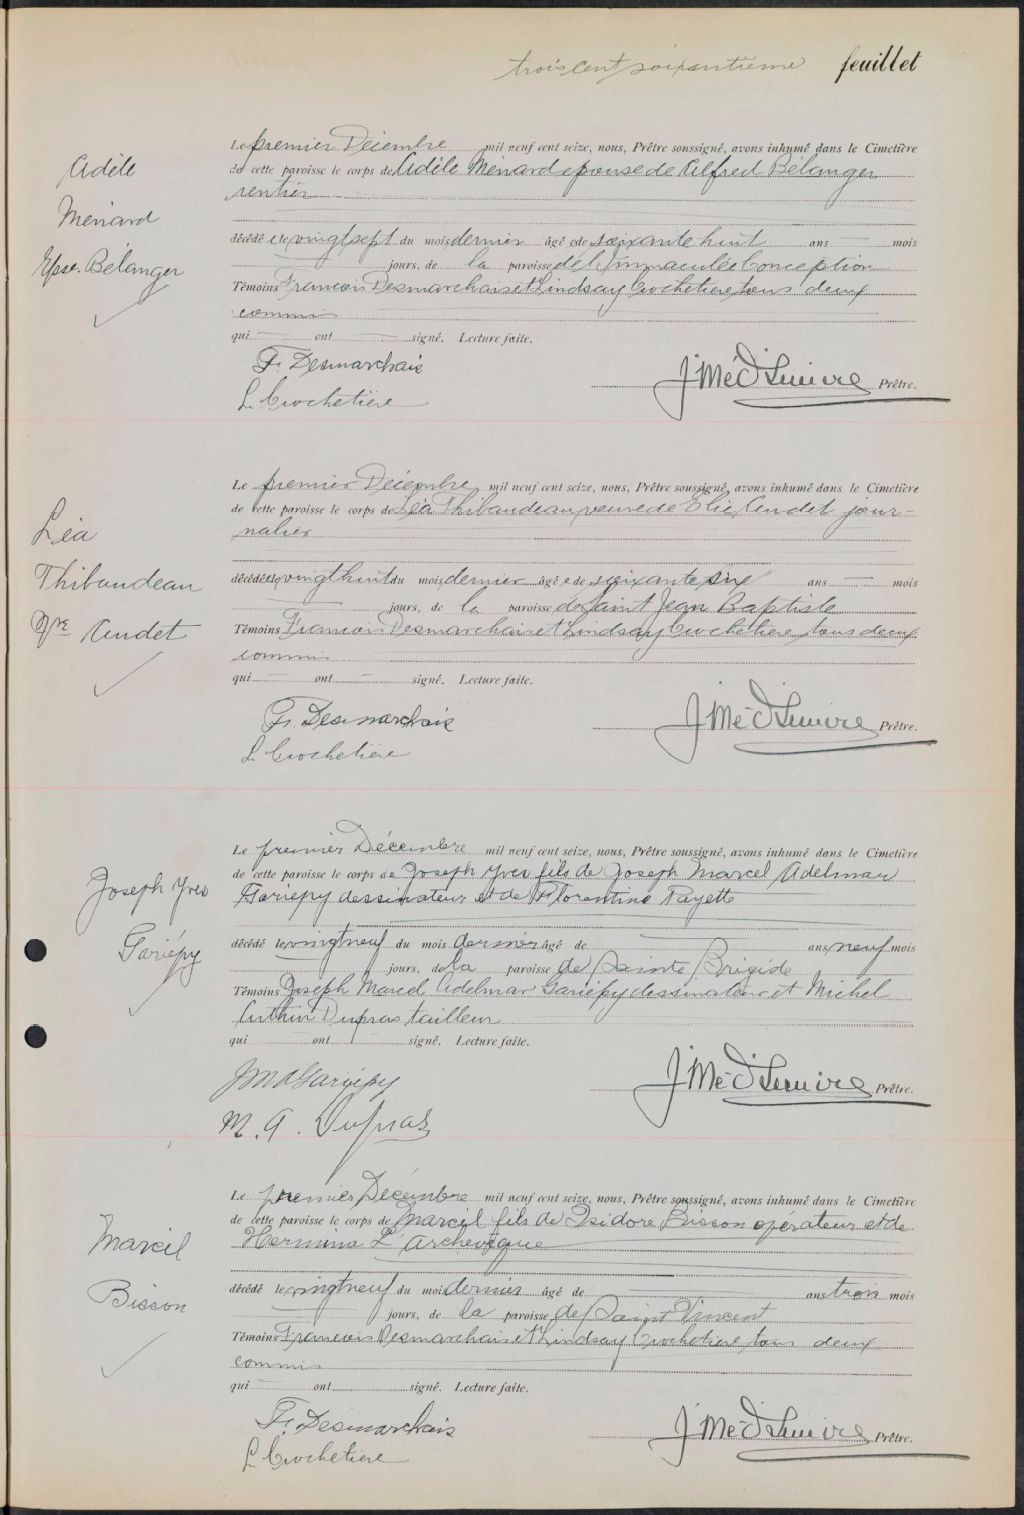 trois cent soixantième feuillet
Adèle
Ménard
Epse. Bélanger
Le premier Décembre mil neuf cent seize, nous, Prêtre soussigné, avons inhumé dans le Cimetière
de cette paroisse le corps de Adèle Ménard epouse de Alfred Bélanger
rentier
décédé e le vingtsept du mois dernier âgé e de soixante huit ans — mois
— jours, de la paroisse de l'Immaculée Conception
Témoins Francois Desmarchais et Lindsay Crochetiere, tous deux
commis
qui — ont — signé. Lecture faite.
F. Desmarchais
L. Crochetière
Prêtre.
Léa
Thibaudeau
Vve Audet
Le premier Décembre mil neuf cent seize, nous, Prêtre soussigné, avons inhumé dans le Cimetière
de cette paroisse le corps de Léa Thibaudeau, veuve de Elie Audet jour-
nalier
décédé e le vingthuit du mois dernier âgé e de soixante six ans — mois
— jours, de la paroisse de Saint Jean Baptiste
Témoins Francois Desmarchais et Lindsay Crochetiere, tous deux
commis
qui — ont — signé. Lecture faite.
F. Desmarchais
L. Crochetière
Prêtre.
Joseph Yves
Gariépy
Le premier Décembre mil neuf cent seize, nous, Prêtre soussigné, avons inhumé dans le Cimetière
de cette paroisse le corps de Joseph Yves fils de Joseph Marcel Adelmar
Gariépy dessinateur et de Florentine Payette
décédé le vingtneuf du mois dernier âgé de — ans neuf mois
— jours, de la paroisse de Sainte Brigide
Témoins Joseph Marcel Adelmar Gariépy dessinateur et Michel
Arthur Dupras tailleur
qui ont signé. Lecture faite.
J M A Gariépy
M. A. Dupras
Prêtre.
Marcil
Bisson
Le premier Décembre mil neuf cent seize, nous, Prêtre soussigné, avons inhumé dans le Cimetière
de cette paroisse le corps de Marcil fils de Isidore Bisson opérateur et de
Hermina L'Archevêque
décédé le vingtneuf du mois dernier âgé de — ans trois mois
— jours, de la paroisse de Saint Vincent
Témoins Francois Desmarchais et Lindsay Crochetiere, tous deux
commis
qui — ont signé. Lecture faite.
F. Desmarchais
L. Crochetiere
Prêtre.